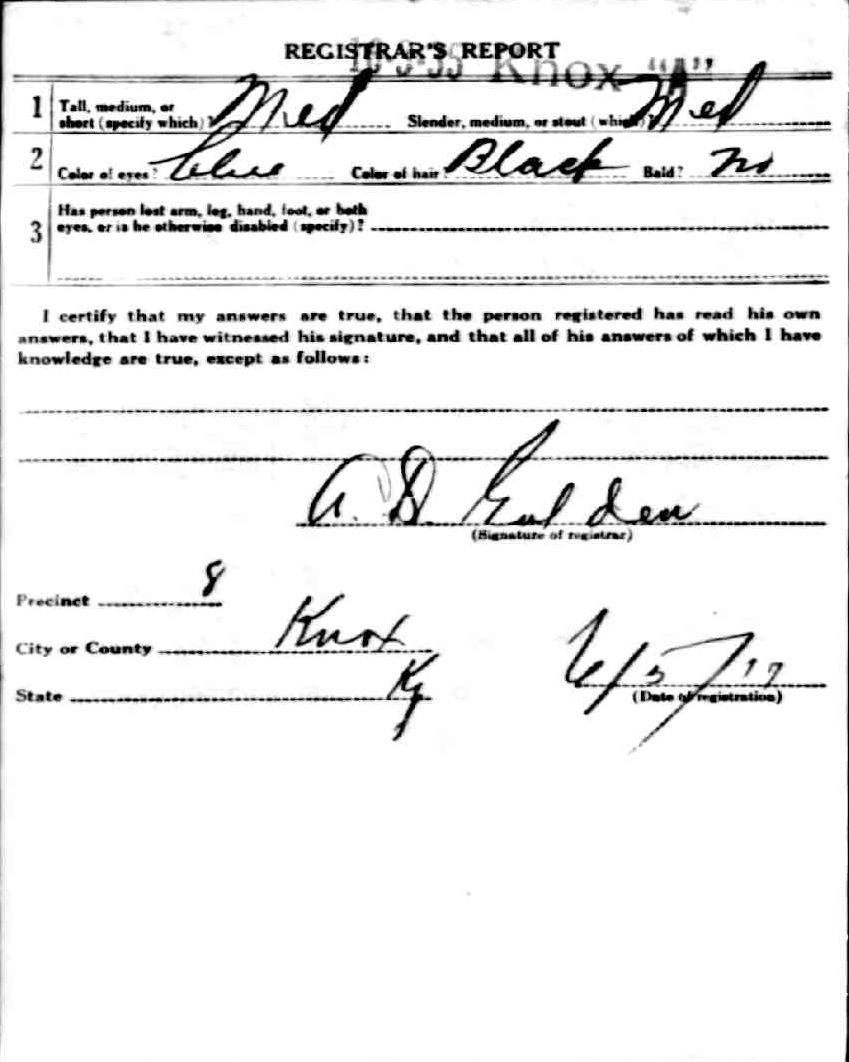 REGISTRAR'S REPORT
Knox "A"
1 Tall, medium, or short (specify which)? Med Slender, medium, or stout (which)? Med
2 Color of eyes? blue Color of hair? Black Bald? no
3 Has person lost arm, leg, hand, foot, or both
eyes, or is he otherwise disabled (specify)?
I certify that my answers are true, that the person registered has read his own
answers, that I have witnessed his signature, and that all of his answers of which I have
knowledge are true, except as follows:
A. D. Golden
(Signature of registrar)
Precinct 8
City or County Knox
State Ky
6/5/17
(Date of registration)